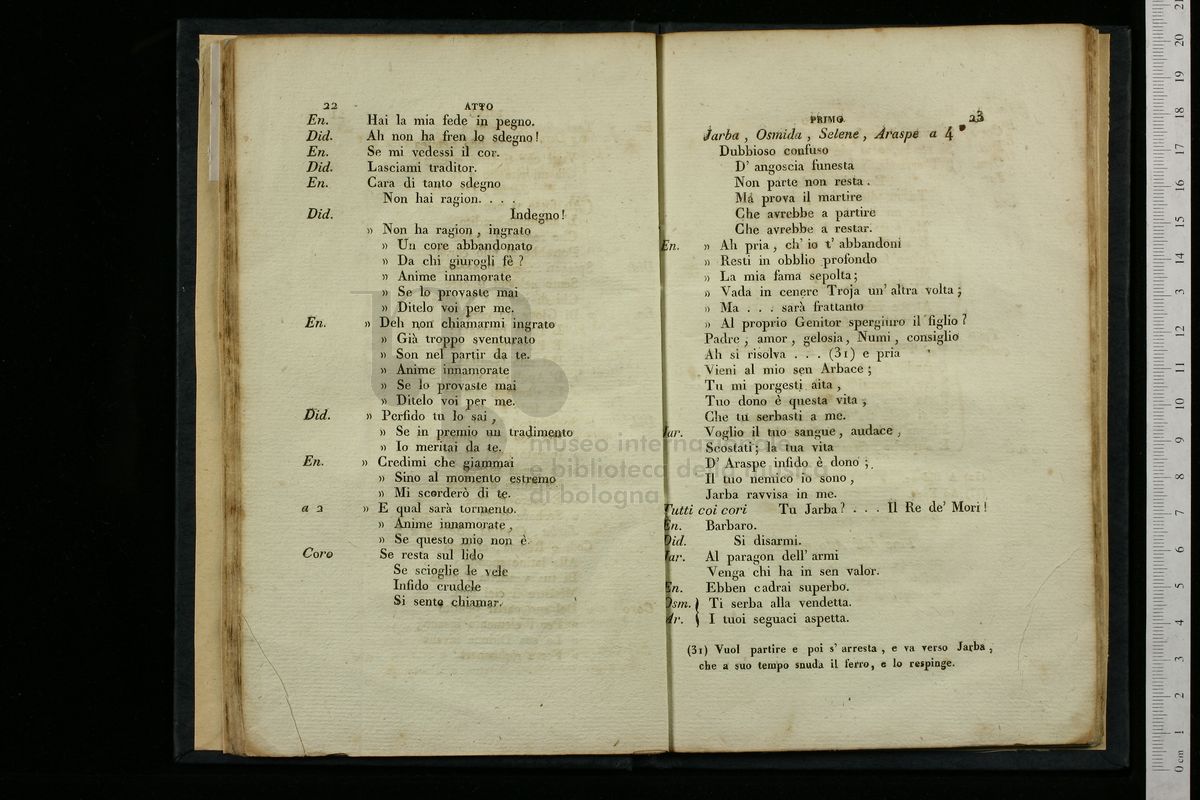 22 ATTO
En. Hai la mia fede in pegno.
Did. Ah non ha fren lo sdegno!
En. Se mi vedessi il cor.
Did. Lasciami traditor.
En. Cara di tanto sdegno
Non hai ragion. . . .
Did. Indegno!
» Non ha ragion, ingrato
» Un core abbandonato
» Da chi giurogli fè?
» Anime innamorate
» Se lo provaste mai
» Ditelo voi per me.
En. » Deh non chiamarmi ingrato
» Già troppo sventurato
» Son nel partir da te.
» Anime innamorate
» Se lo provaste mai
» Ditelo voi per me.
Did. » Perfido tu lo sai,
» Se in premio un tradimento
» Io meritai da te.
En. » Credimi che giammai
» Sino al momento estremo
» Mi scorderò di te.
a 2 » E qual sarà tormento.
» Anime innamorate,
» Se questo mio non è.
Coro Se resta sul lido
Se scioglie le vele
Infido crudele
Si sente chiamar.
PRIMO 23
Jarba, Osmida, Selene, Araspe a 4
Dubbioso confuso
D' angoscia funesta
Non parte non resta.
Ma prova il martire
Che avrebbe a partire
Che avrebbe a restar.
En. » Ah pria, ch' io t' abbandoni
» Resti in obblio profondo
» La mia fama sepolta;
» Vada in cenere Troja un' altra volta;
» Ma . . . sarà frattanto
» Al proprio Genitor spergiuro il figlio?
Padre, amor, gelosia, Numi, consiglio
Ah si risolva . . . (31) e pria
Vieni al mio sen Arbace;
Tu mi porgesti aita,
Tuo dono è questa vita,
Che tu serbasti a me.
Jar. Voglio il tuo sangue, audace,
Scostati; la tua vita
D' Araspe infido è dono;.
Il tuo nemico io sono,
Jarba ravvisa in me.
Tutti coi cori Tu Jarba? . . . Il Re de' Mori!
En. Barbaro.
Did. Si disarmi.
Jar. Al paragon dell' armi
Venga chi ha in sen valor.
En. Ebben cadrai superbo.
Osm. } Ti serba alla vendetta.
Ar. } I tuoi seguaci aspetta.
(31) Vuol partire e poi s' arresta, e va verso Jarba,
che a suo tempo snuda il ferro, e lo respinge.
museo internazionale
e biblioteca della musica
di bologna
0 cm 1 2 3 4 5 6 7 8 9 10 11 12 13 14 15 16 17 18 19 20 21